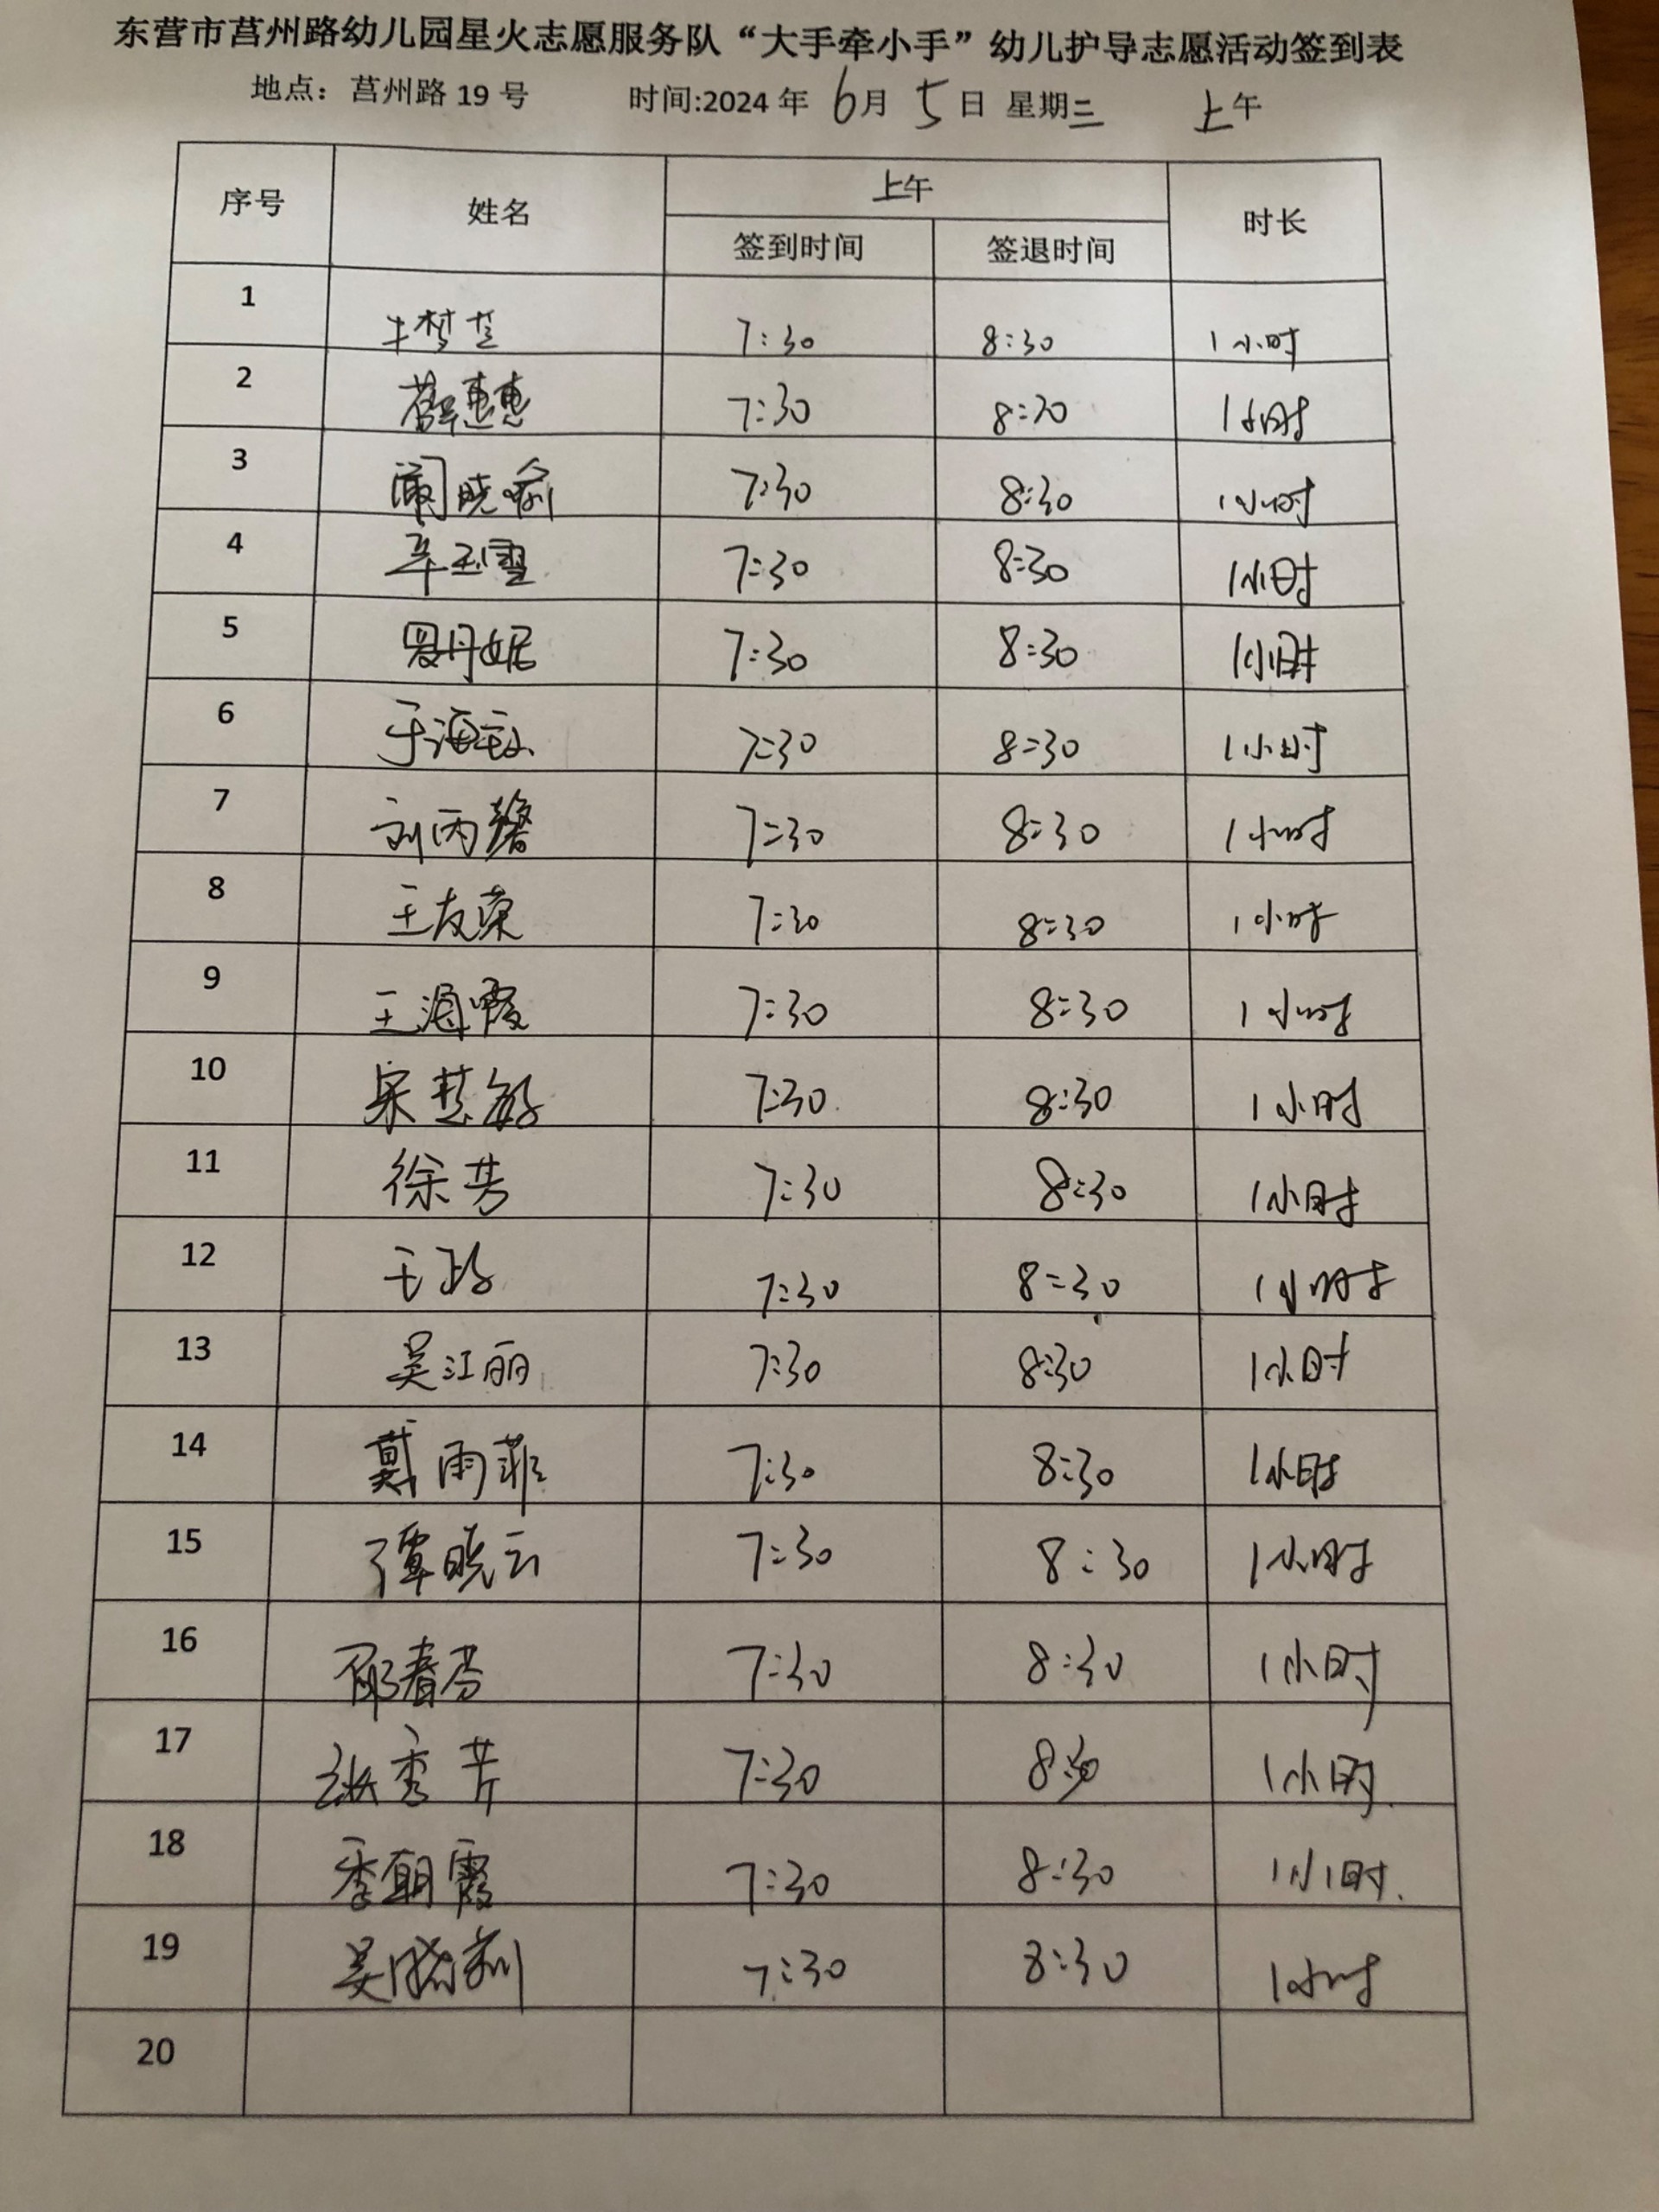 东营市莒州路幼儿园星火志愿服务队“大手牵小手”幼儿护导志愿活动签到表
地点：莒州路 19 号 时间:2024 年 6月 5日 星期三 上午
序号 姓名 上午 时长
签到时间 签退时间
1 牛梦芝 7:30 8:30 1小时
2 薛惠惠 7:30 8:30 1小时
3 阚晓喻 7:30 8:30 1小时
4 辛玉 7:30 8:30 1小时
5 罗丹妮 7:30 8:30 1小时
6 于海 7:30 8:30 1小时
7 刘丙馨 7:30 8:30 1小时
8 王友荣 7:30 8:30 1小时
9 王海霞 7:30 8:30 1小时
10 宋慧敏 7:30 8:30 1小时
11 徐芳 7:30 8:30 1小时
12 王 7:30 8:30 1小时
13 吴江丽 7:30 8:30 1小时
14 戴雨菲 7:30 8:30 1小时
15 谭晓云 7:30 8:30 1小时
16 邵春芬 7:30 8:30 1小时
17 张秀芹 7:30 8:30 1小时
18 季朝霞 7:30 8:30 1小时.
19 吴晓莉 7:30 8:30 1小时
20